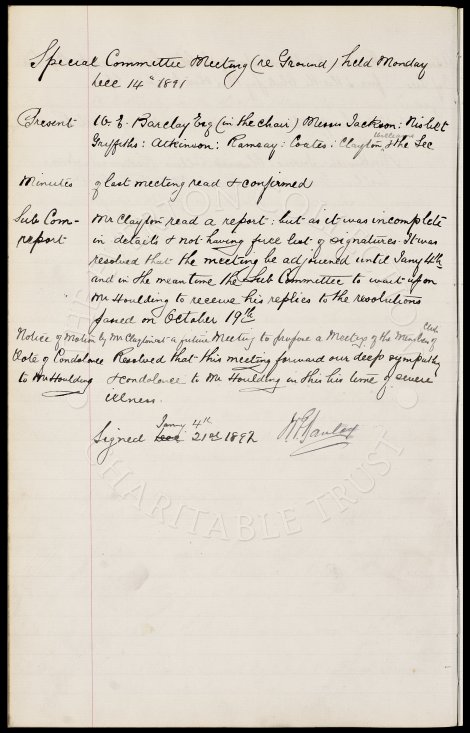 Special Committee Meeting (re Ground) held Monday
Dec 14th 1891
Present W. E. Barclay Esq (in the chair) Messrs Jackson: Nisbet
Griffiths: Atkinson: Ramsay: Coates: Clayton, Williams & the Sec
Minutes of last meeting read & confirmed
Sub Com- Mr Clayton read a report: but as it was incomplete
report in details & not having full list of signatures. It was
resolved that the meeting be adjourned until Jany 4th
and in the meantime the Sub Committee to wait upon
Mr Houlding to receive his replies to the resolutions
passed on October 19th
Notice of Motion by Mr Clayton at a future Meeting to propose a Meeting of the Members of Club
Vote of Condolence Resolved that this meeting forward our deep sympathy
to Mr Houlding & condolence to Mr Houlding in this his time of severe
illness.
Signed Jany 4th
Dec 21st 1892
CHARITABLE TRUST